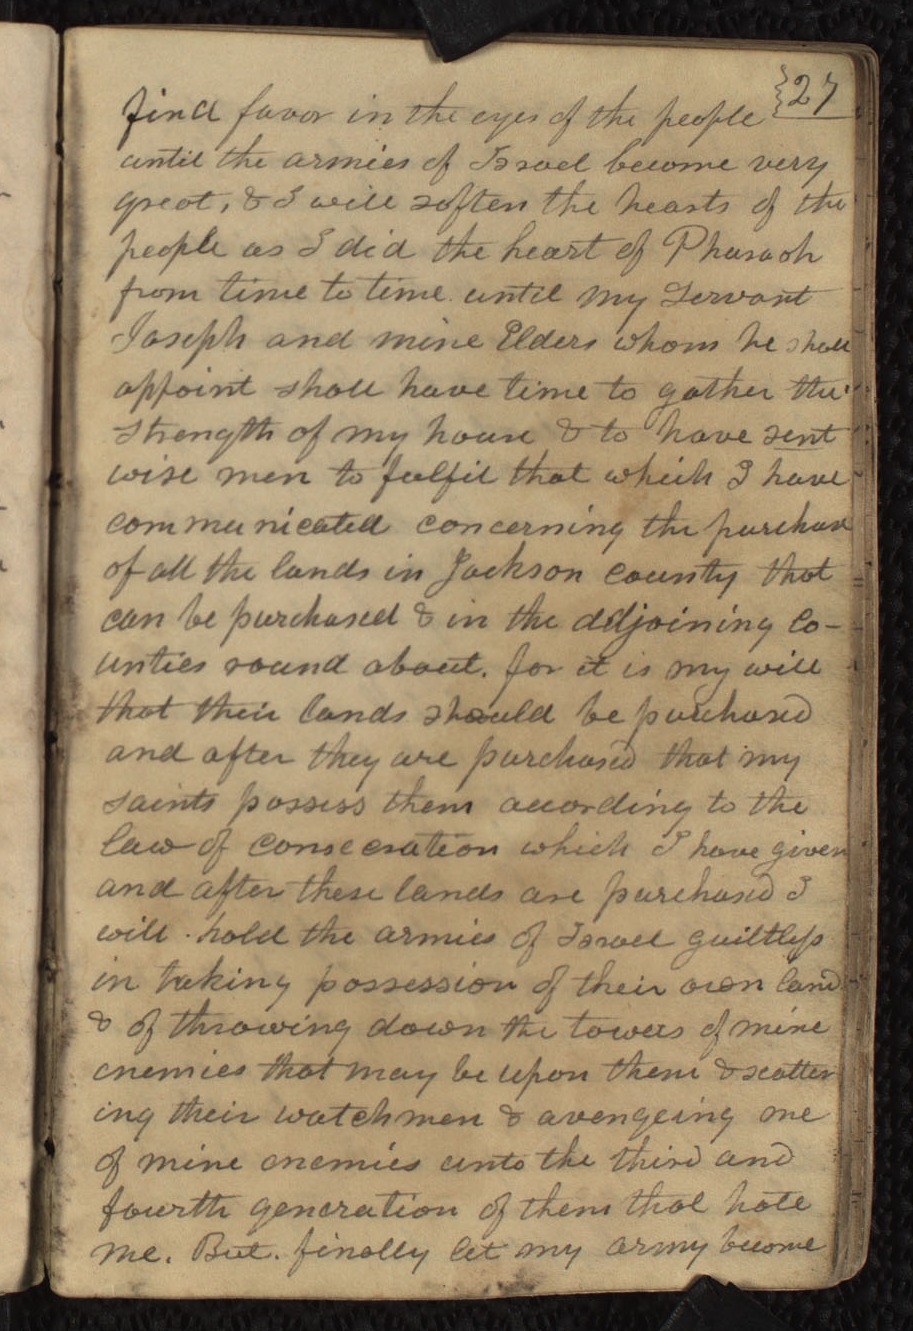 27
find favor in the eyes of the people
until the armies of Israel become very
great, & I will soften the hearts of the
people as I did the heart of Pharaoh
from time to time until my Servant
Joseph and mine Elders whom he shall
appoint shall have time to gather the
strength of my house & to have sent
wise men to fulfil that which I have
communicated concerning the purchase
of all the lands in Jackson county that
can be purchased & in the adjoining co-
unties round about. for it is my will
that their lands should be purchased
and after they are purchased that my
saints possess them according to the
law of consecration which I have given
and after these lands are purchased I
will hold the armies of Israel guiltless
in taking possession of their own land
& of throwing down the towers of mine
enemies that may be upon them & scatter
ing their watchmen & avengeing me
of mine enemies unto the third and
fourth generation of them that hate
me. But. finally let my army become